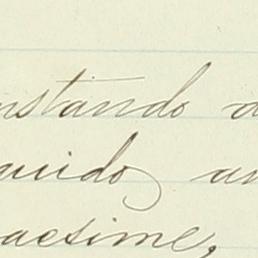 nstando a
uido an
aesime,